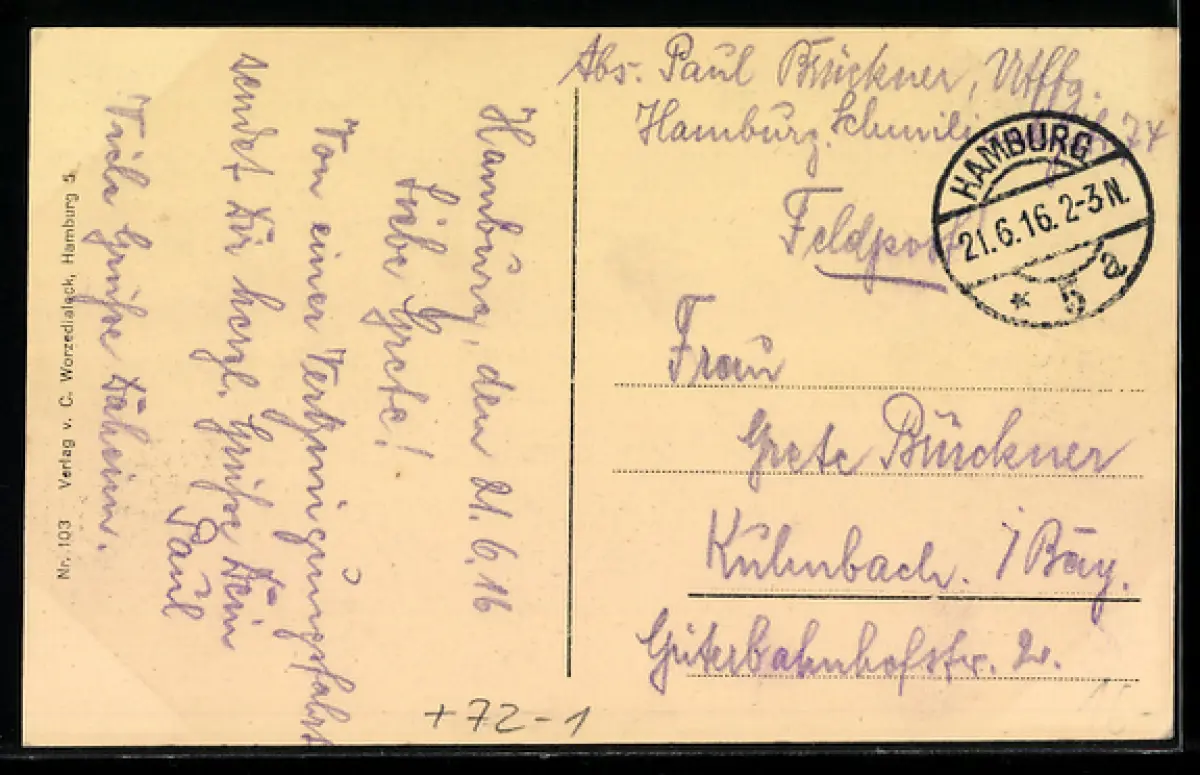 Hamburg, den 21.6.16
Liebe Grete!
Von einer Vergnügungsfahrt
sendet Dir herzl. Grüße Dein
Paul
Viele Grüße daheim.
Nr. 103 Verlag v. C. Worzedialeck, Hamburg 5.
Abs. Paul Brückner, Utffz.
Hamburg. 74
Feldpost
HAMBURG
21.6.16.2-3N.
* 5 a
Frau
Grete Brückner
Kulmbach. i/Bay.
Güterbahnhofstr. 2.
+72-1